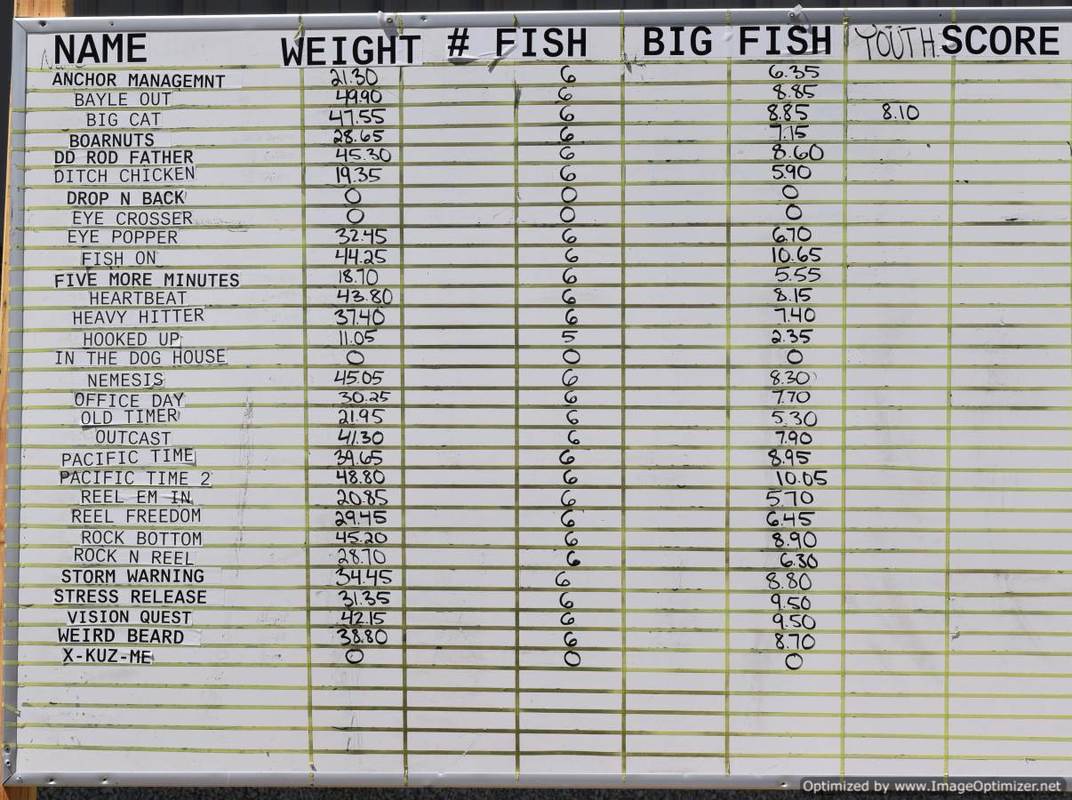 NAME WEIGHT # FISH BIG FISH YOUTH SCORE
ANCHOR MANAGEMNT 21.30 6 6.35
BAYLE OUT 49.90 6 8.85
BIG CAT 47.55 6 8.85 8.10
BOARNUTS 28.65 6 7.15
DD ROD FATHER 45.30 6 8.60
DITCH CHICKEN 19.35 6 5.90
DROP N BACK 0 0 0
EYE CROSSER 0 0 0
EYE POPPER 32.45 6 6.70
FISH ON 44.25 6 10.65
FIVE MORE MINUTES 18.70 6 5.55
HEARTBEAT 43.80 6 8.15
HEAVY HITTER 37.40 6 7.40
HOOKED UP 11.05 5 2.35
IN THE DOG HOUSE 0 0 0
NEMESIS 45.05 6 8.30
OFFICE DAY 30.25 6 7.70
OLD TIMER 21.95 6 5.30
OUTCAST 41.30 6 7.90
PACIFIC TIME 39.65 6 8.95
PACIFIC TIME 2 48.80 6 10.05
REEL EM IN 20.85 6 5.70
REEL FREEDOM 29.45 6 6.45
ROCK BOTTOM 45.20 6 8.90
ROCK N REEL 28.70 6 6.30
STORM WARNING 34.45 6 8.80
STRESS RELEASE 31.35 6 9.50
VISION QUEST 42.15 6 9.50
WEIRD BEARD 38.80 6 8.70
X-KUZ-ME 0 0 0
Optimized by www.ImageOptimizer.net